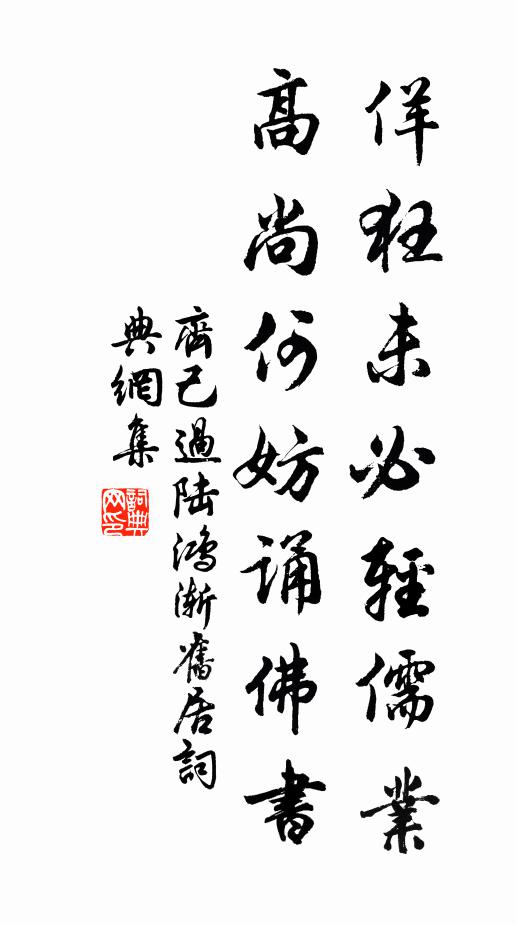 佯狂未必輕儒業
高尚何妨誦佛書
齊己過陸鴻漸舊居詞
典網集
詞典
网印